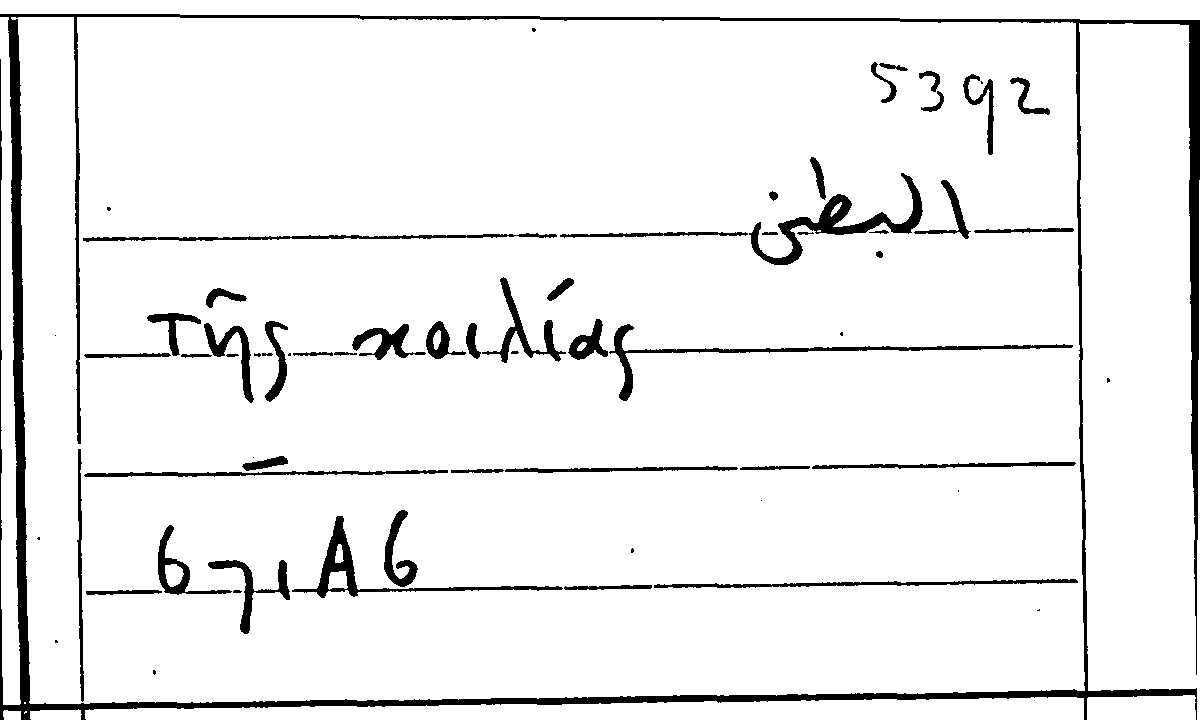 5392
البطن
τῆς κοιλίας
–
671A6